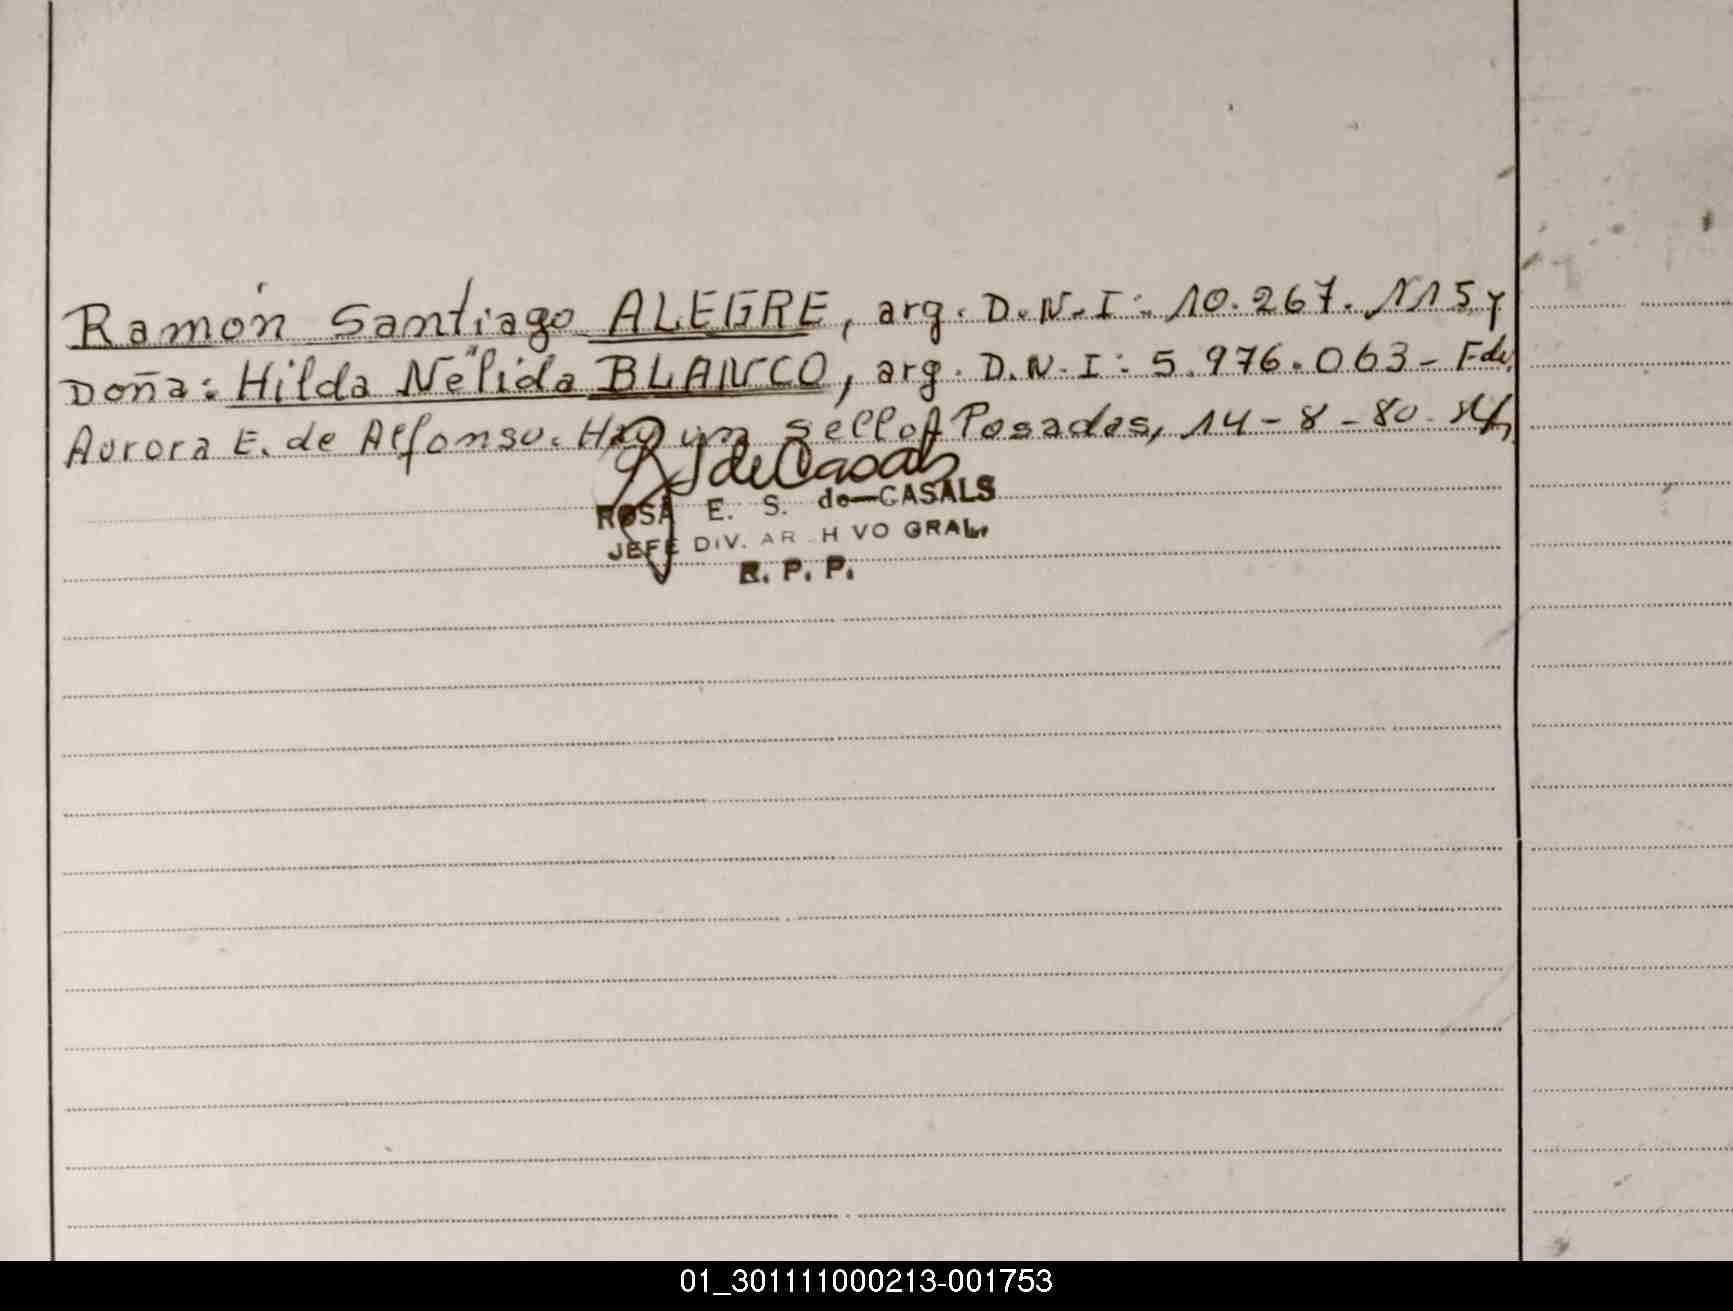 Ramón Santiago ALEGRE, arg. D.N.I: 10.267.115 y
Doña: Hilda Nélida BLANCO, arg. D.N.I: 5.976.063- Fdo.
Aurora E. de Alfonso. Hay un sello. Posadas, 14-8-80.
de Casals
ROSA E. S. de CASALS
JEFE DIV. ARCHIVO GRAL.
R. P. P.
01_301111000213-001753